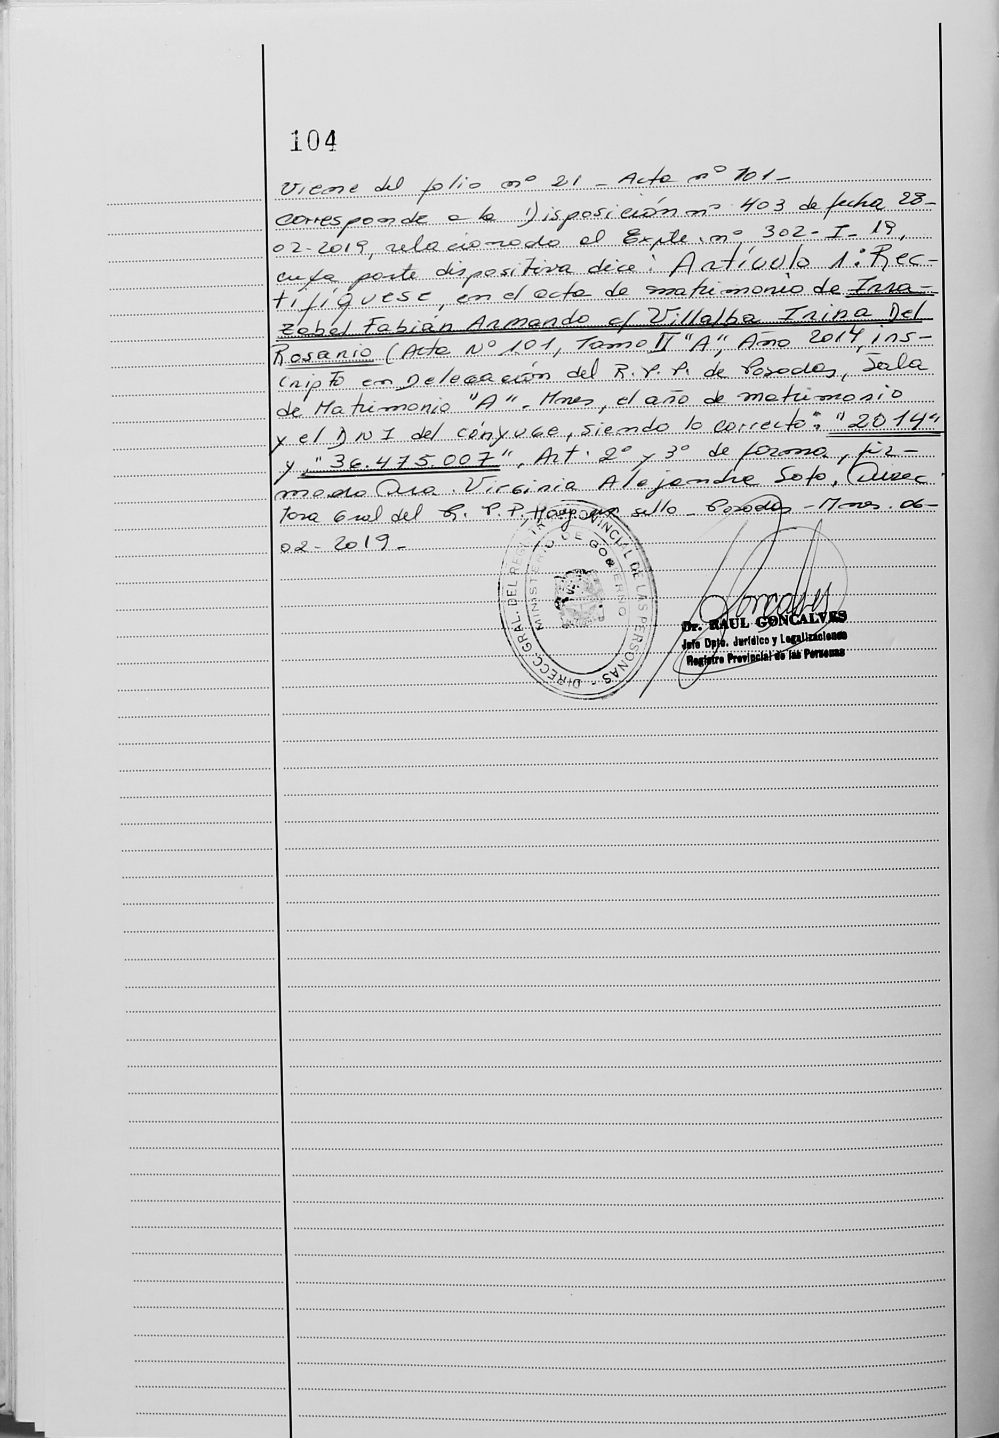 104
Viene del folio nº 21 - Acta nº 101 -
Corresponde a la Disposición nº 403 de fecha 28-
02-2019, relacionado al Expte. nº 302-I-19,
cuya parte dispositiva dice: Artículo 1º: Rec-
tifíquese, en el acta de matrimonio de Irra-
zabel Fabián Armando c/ Villalba Irina Del
Rosario (Acta Nº 101, Tomo II "A", Año 2014, ins-
cripto en Delegación del R.P.P. de Posadas, Sala
de Matrimonio "A" - Mnes, el año de matrimonio
y el DNI del cónyuge, siendo lo correcto: "2014"
y "36.475.007", Art. 2º y 3º de forma, fir-
mado Dra. Virginia Alejandra Soto, Direc
tora Gral del R.P.P. Hay un sello - Posadas - Mnes. 06-
02-2019-
DIRECC. GRAL. DEL REGISTRO PROVINCIAL DE LAS PERSONAS -
MINISTERIO DE GOBIERNO
Dr. RAUL GONCALVES
Jefe Dpto. Jurídico y Legalizaciones
Registro Provincial de las Personas